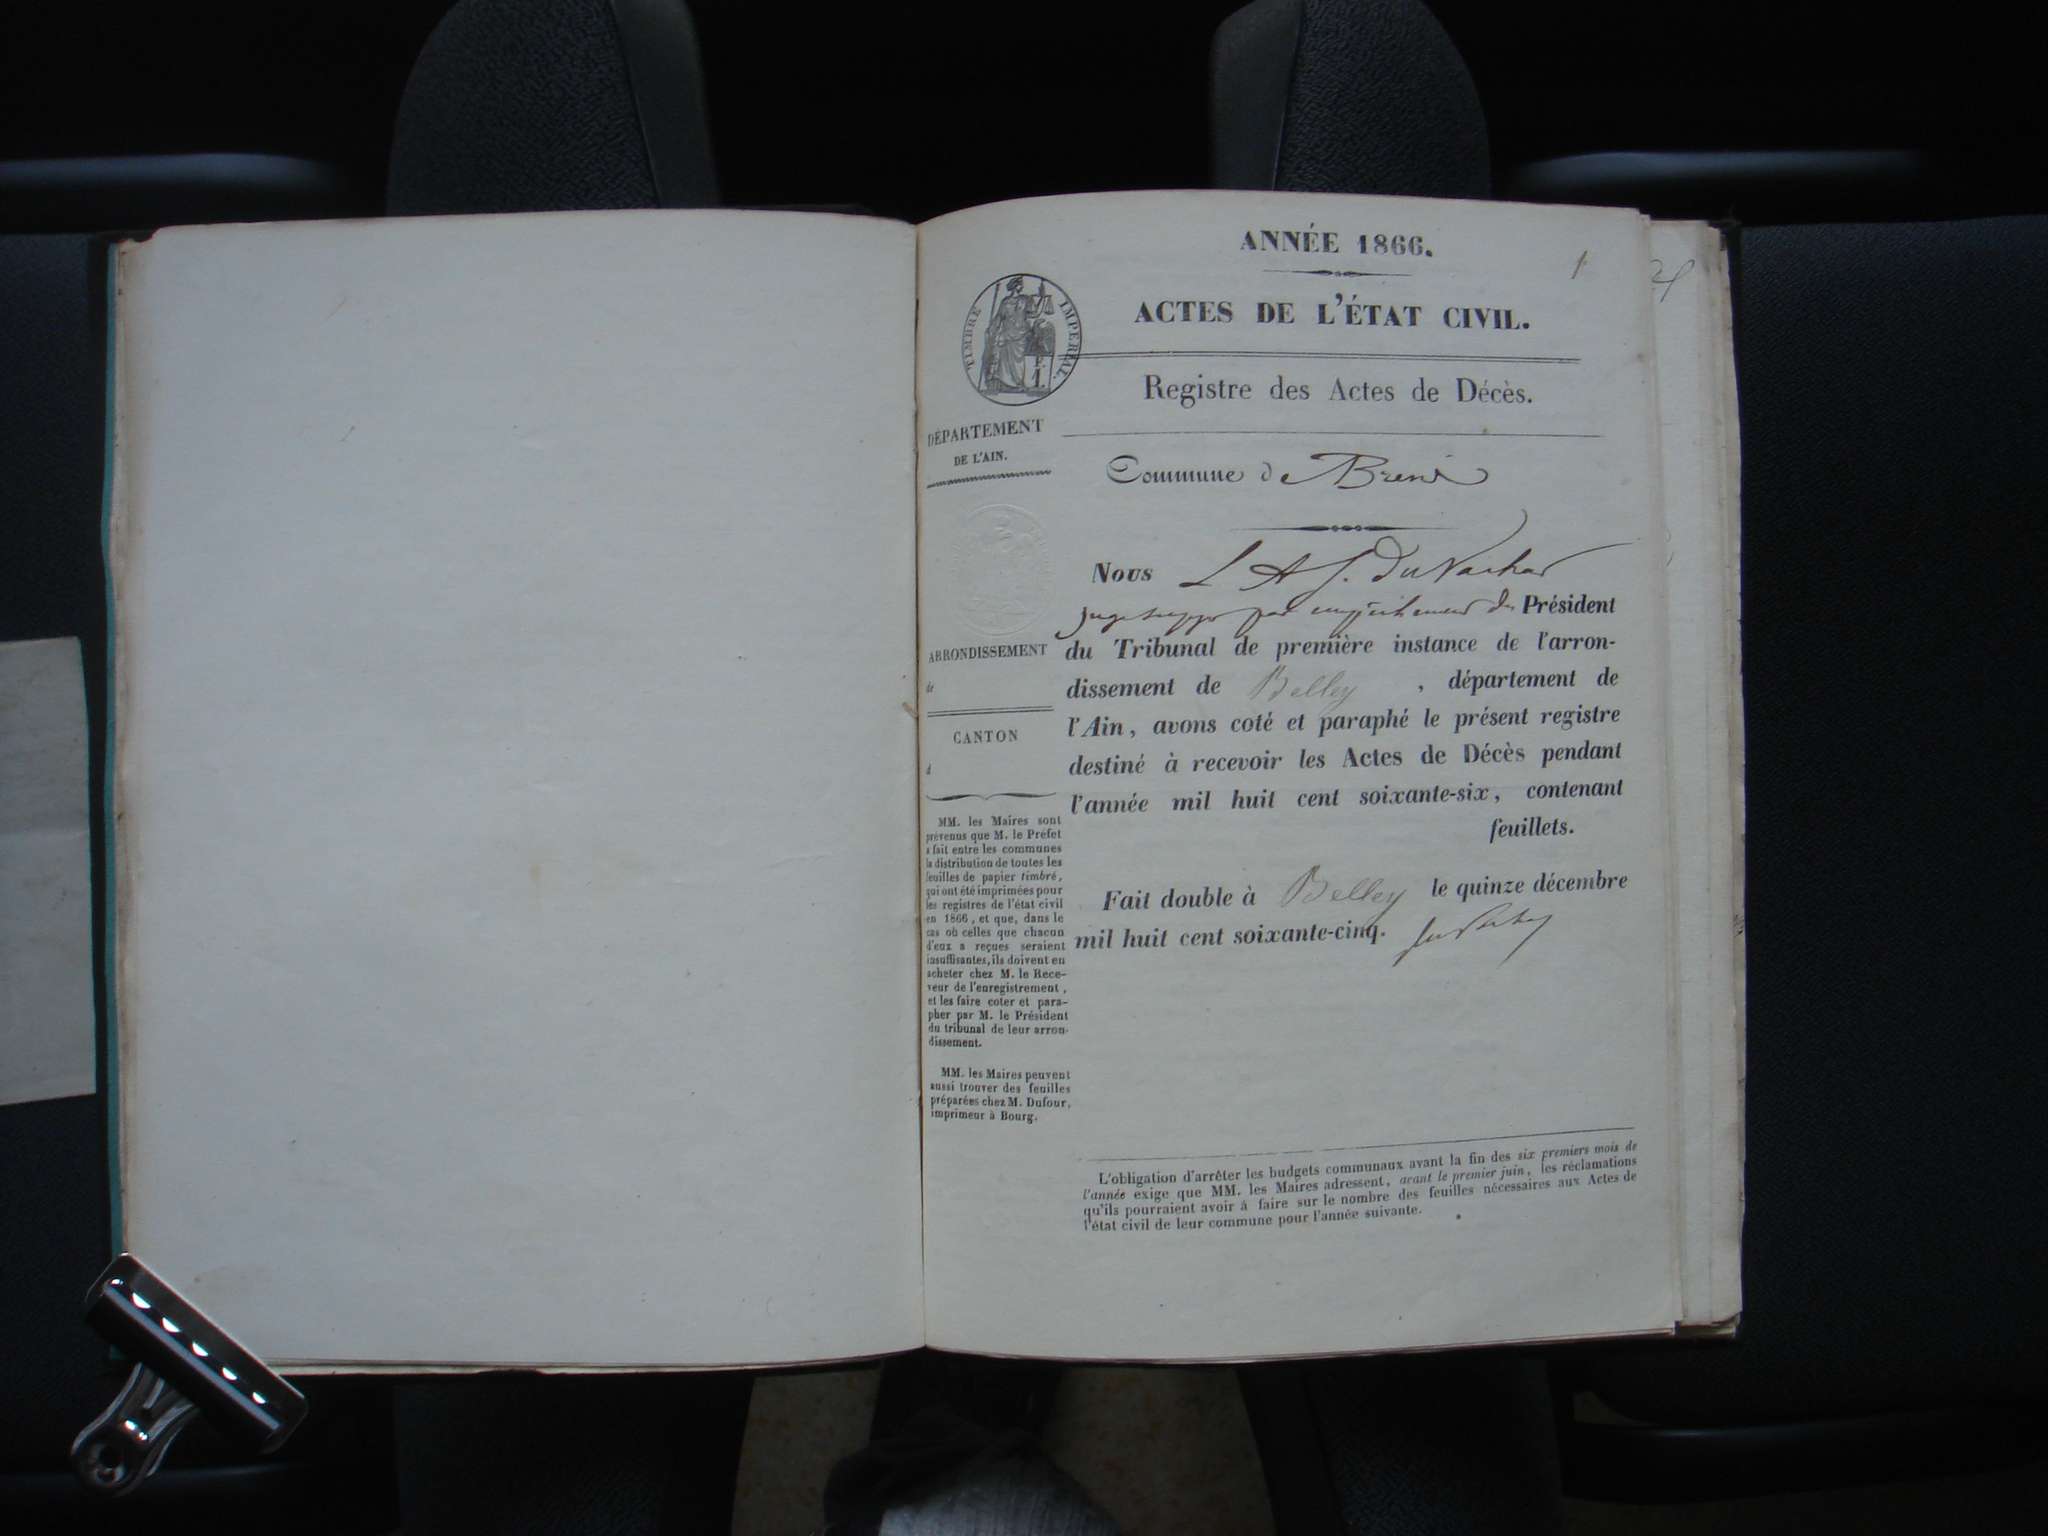 ANNÉE 1866.
1
TIMBRE IMPÉRIAL.
F.
1.
ACTES DE L'ÉTAT CIVIL.
Registre des Actes de Décès.
DÉPARTEMENT
DE L'AIN.
Commune de
Nous L A J.
juge supp par empêchement du Président
du Tribunal de première instance de l'arron-
dissement de Belley , département de
l'Ain, avons coté et paraphé le présent registre
destiné à recevoir les Actes de Décès pendant
l'année mil huit cent soixante-six, contenant
feuillets.
Fait double à Belley le quinze décembre
mil huit cent soixante-cinq.
ARRONDISSEMENT
de
CANTON
d
MM. les Maires sont
prévenus que M. le Préfet
a fait entre les communes
la distribution de toutes les
feuilles de papier timbré,
qui ont été imprimées pour
les registres de l'état civil
en 1866, et que, dans le
cas où celles que chacun
d'eux a reçues seraient
insuffisantes, ils doivent en
acheter chez M. le Rece-
veur de l'enregistrement,
et les faire coter et para-
pher par M. le Président
du tribunal de leur arron-
dissement.
MM. les Maires peuvent
aussi trouver des feuilles
préparées chez M. Dufour,
imprimeur à Bourg.
L'obligation d'arrêter les budgets communaux avant la fin des six premiers mois de
l'année exige que MM. les Maires adressent, avant le premier juin, les réclamations
qu'ils pourraient avoir à faire sur le nombre des feuilles nécessaires aux Actes de
l'état civil de leur commune pour l'année suivante.